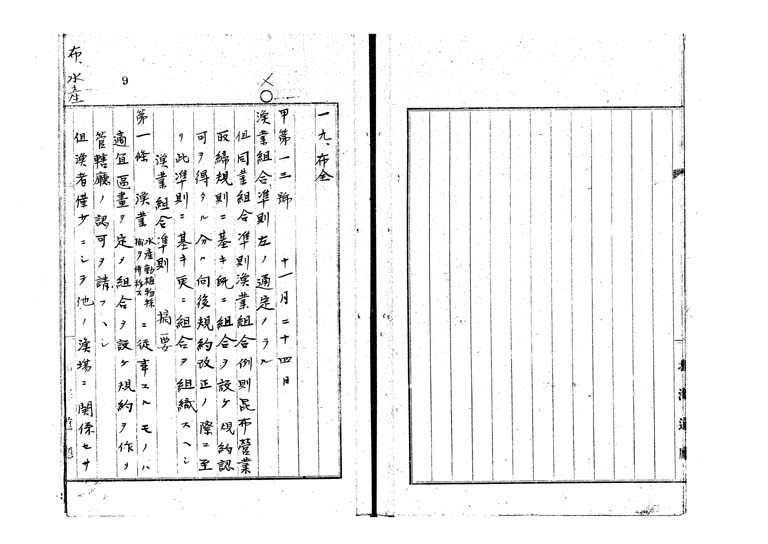 一九、布全
甲第一三號 十一月二十四日
漁業組合準則左ノ通定メラル
但同業組合準則漁業組合例則昆布營業
取締規則ニ基キ既ニ組合ヲ設ケ規約認
可ヲ得タル分ハ向後規約改正ノ際ニ至
リ此準則ニ基キ更ニ組合ヲ組織スヘシ
漁業組合準則 摘要
第一條 漁業水産動植物採捕ヲ併称スニ從事スルモノハ
適宜區畫ヲ定メ組合ヲ設ケ規約ヲ作リ
管轄廳ノ認可ヲ請フヘシ
但漁者僅少ニシテ他ノ漁場ニ關係セサ
布 水産
9
北海道廳